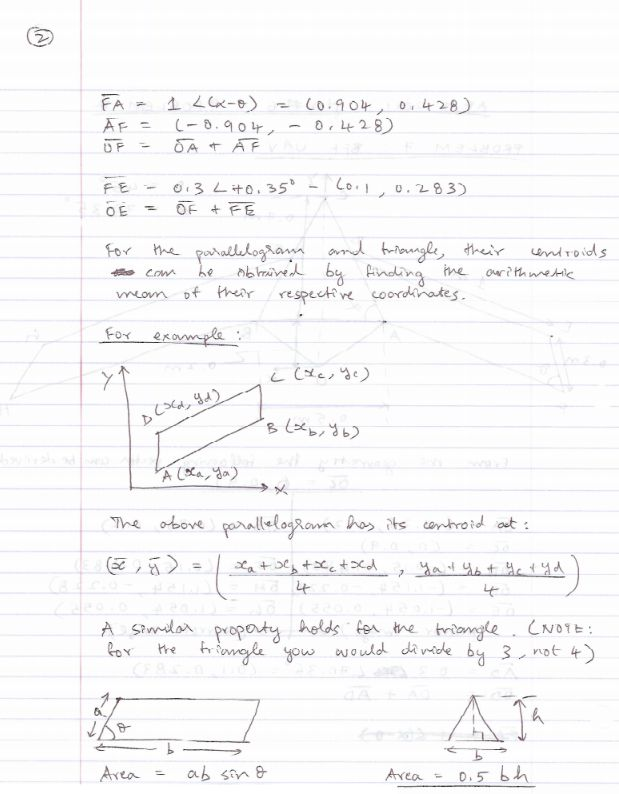 2
FA = 1 ∠(α-θ) = (0.904, 0.428)
AF = (-0.904, -0.428)
OF = OA + AF
FE - 0.3 ∠ 70.35° - (0.1, 0.283)
OE = OF + FE
For the parallelogram and triangle, their centroids
can be obtained by finding the arithmetic
mean of their respective coordinates.
For example :
Y
C (xc, yc)
D (xd, yd)
B (xb, yb)
A (xa, ya)
X
The above parallelogram has its centroid at :
(x̄, ȳ) = ( xa + xb + xc + xd / 4 , ya + yb + yc + yd / 4 )
A similar property holds for the triangle. (NOTE:
for the triangle you would divide by 3, not 4)
a θ b
h b
Area = ab sin θ
Area = 0.5 bh